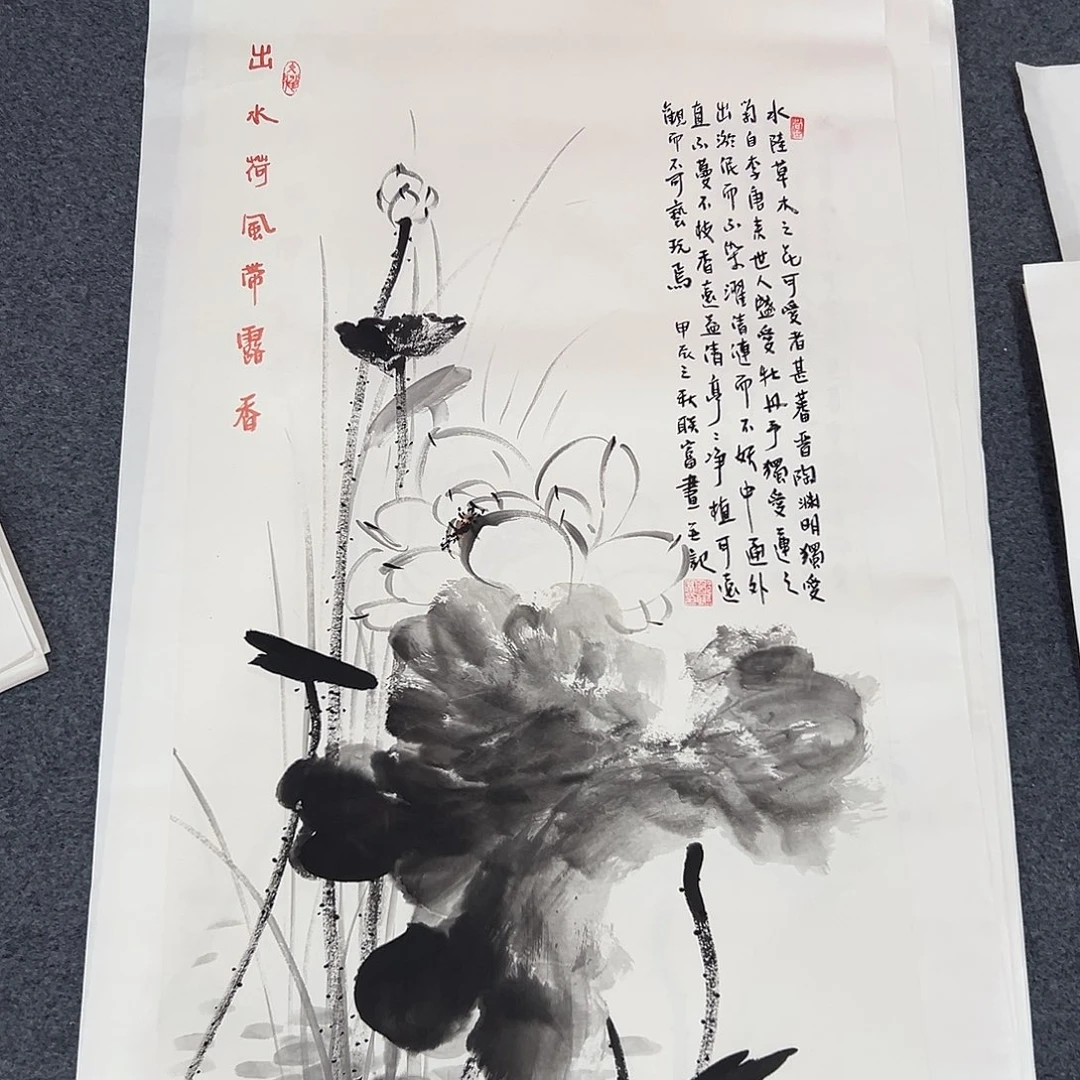 水陸草木之花可愛者甚蕃晉陶淵明獨愛
菊自李唐来世人盛愛牡丹予獨愛蓮之
出淤泥而不染濯清漣而不妖中通外
直不蔓不枝香遠益清亭〻淨植可遠
觀而不可藝玩焉 甲辰之秋联富畫並記
出水荷風帶露香